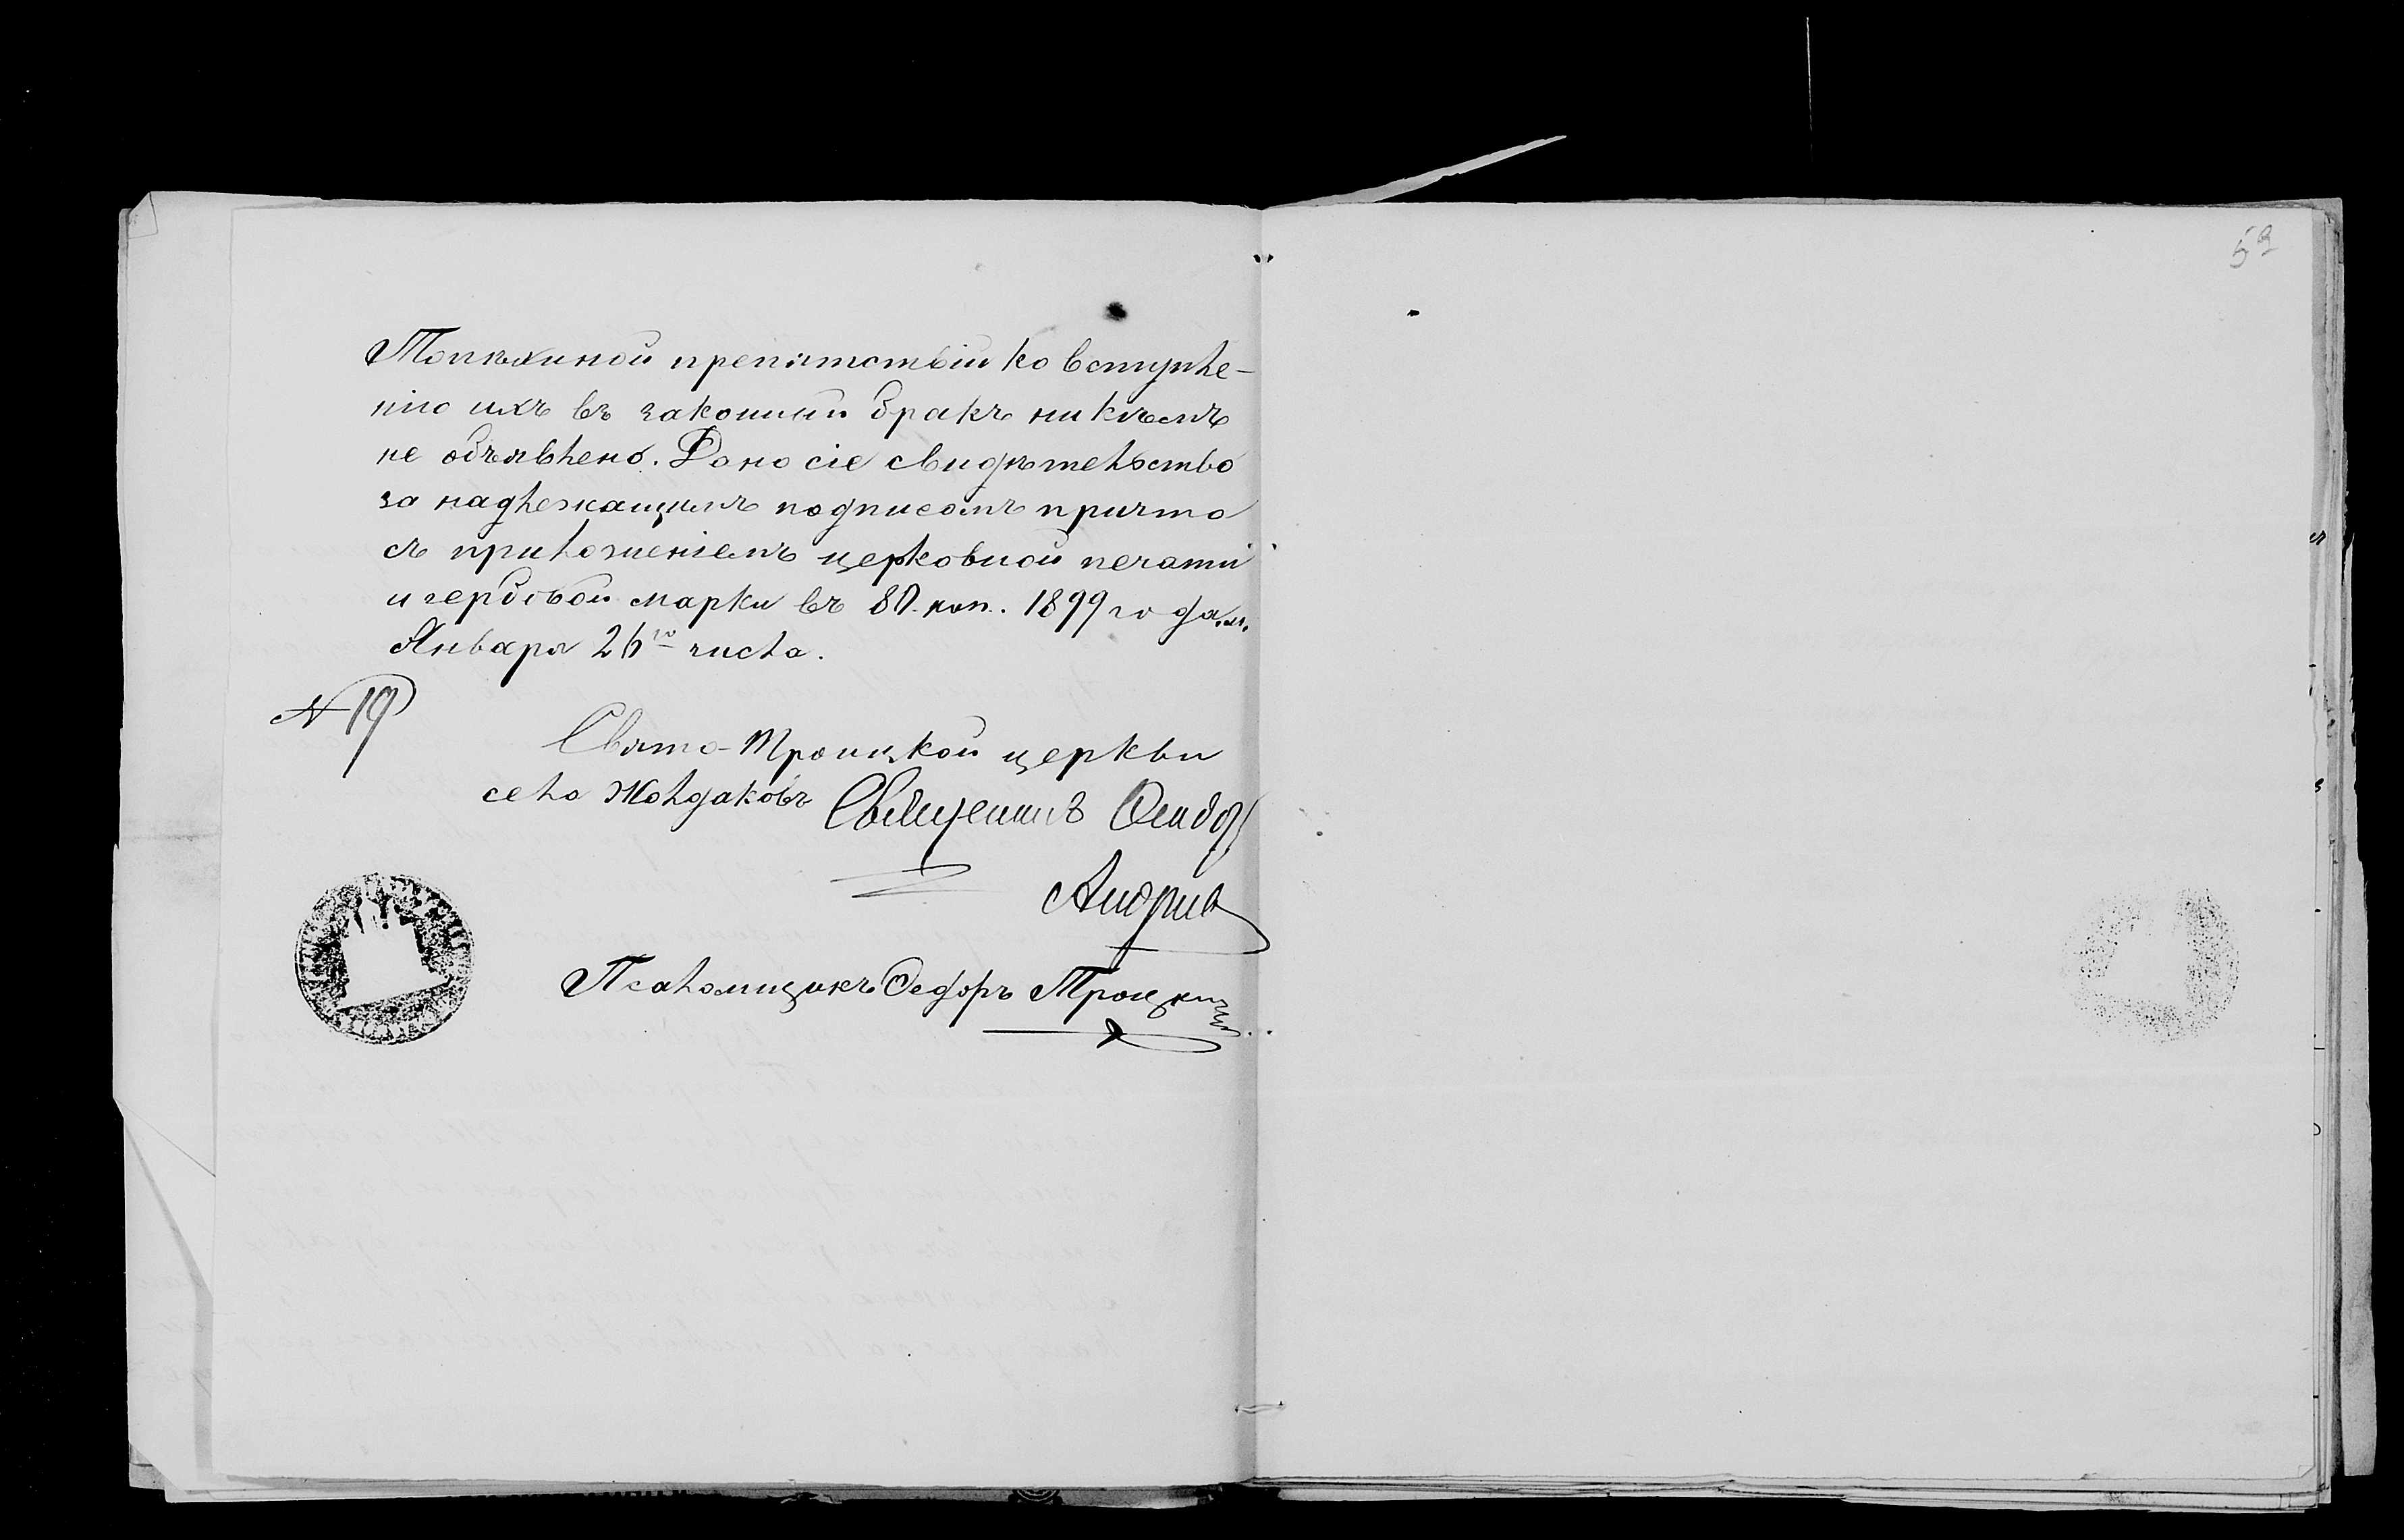 53
Топѣхиной препятствiй ко вступле-
нiю ихъ въ законный бракъ никѣмъ
не объявлено. Дано сiе свидѣтельство
за надлежащимъ подписомъ причта
съ приложенiемъ церковной печати
и гербовой марки въ 80. коп. 1899 года. м.
Января 26го числа.
N 19
Свято-Троицкой церкви
села Жолдаковъ Священникъ
Псаломщикъ Федоръ Троцкiй